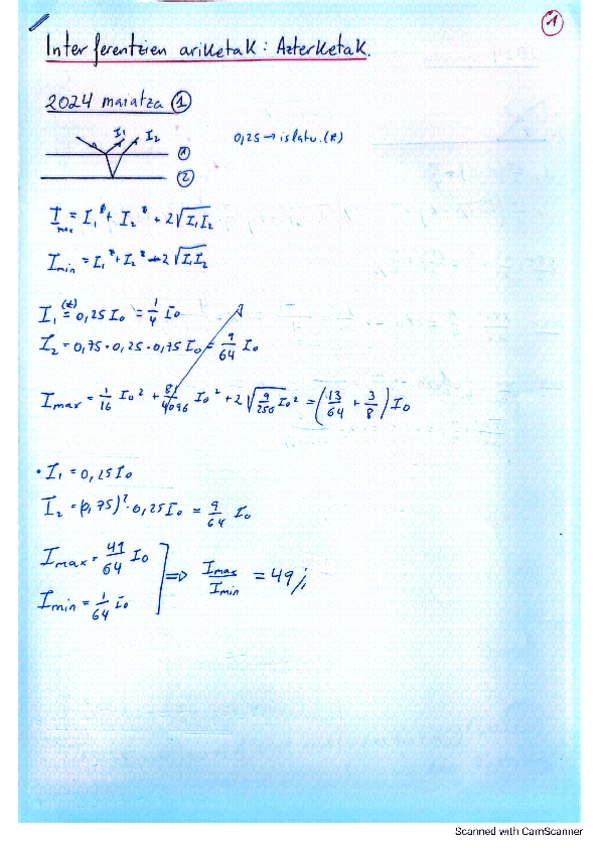 1
Interferentzien ariketak: Azterketak.
2024 maiatza 1
I₁ I₂
0,25 → islatu. (*)
1
2
I_max = I₁² + I₂² + 2√I₁I₂
I_min = I₁² + I₂² - 2√I₁I₂
I₁ (*) = 0,25 I₀ = 1/4 I₀
I₂ = 0,75 · 0,25 · 0,75 I₀ = 9/64 I₀
I_max = 1/16 I₀² + 81/4096 I₀² + 2√9/256 I₀² = (13/64 + 3/8) I₀
• I₁ = 0,25 I₀
I₂ = (0,75)² · 0,25 I₀ = 9/64 I₀
I_max = 49/64 I₀
I_min = 1/64 I₀
⇒ I_max/I_min = 49 //
Scanned with CamScanner